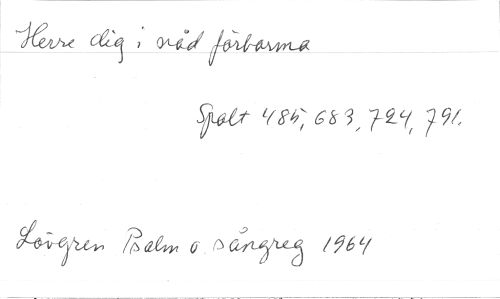 Herre dig i nåd förbarma
Spalt 485, 683, 724, 791.
Lövgren Psalm o. sångreg 1964